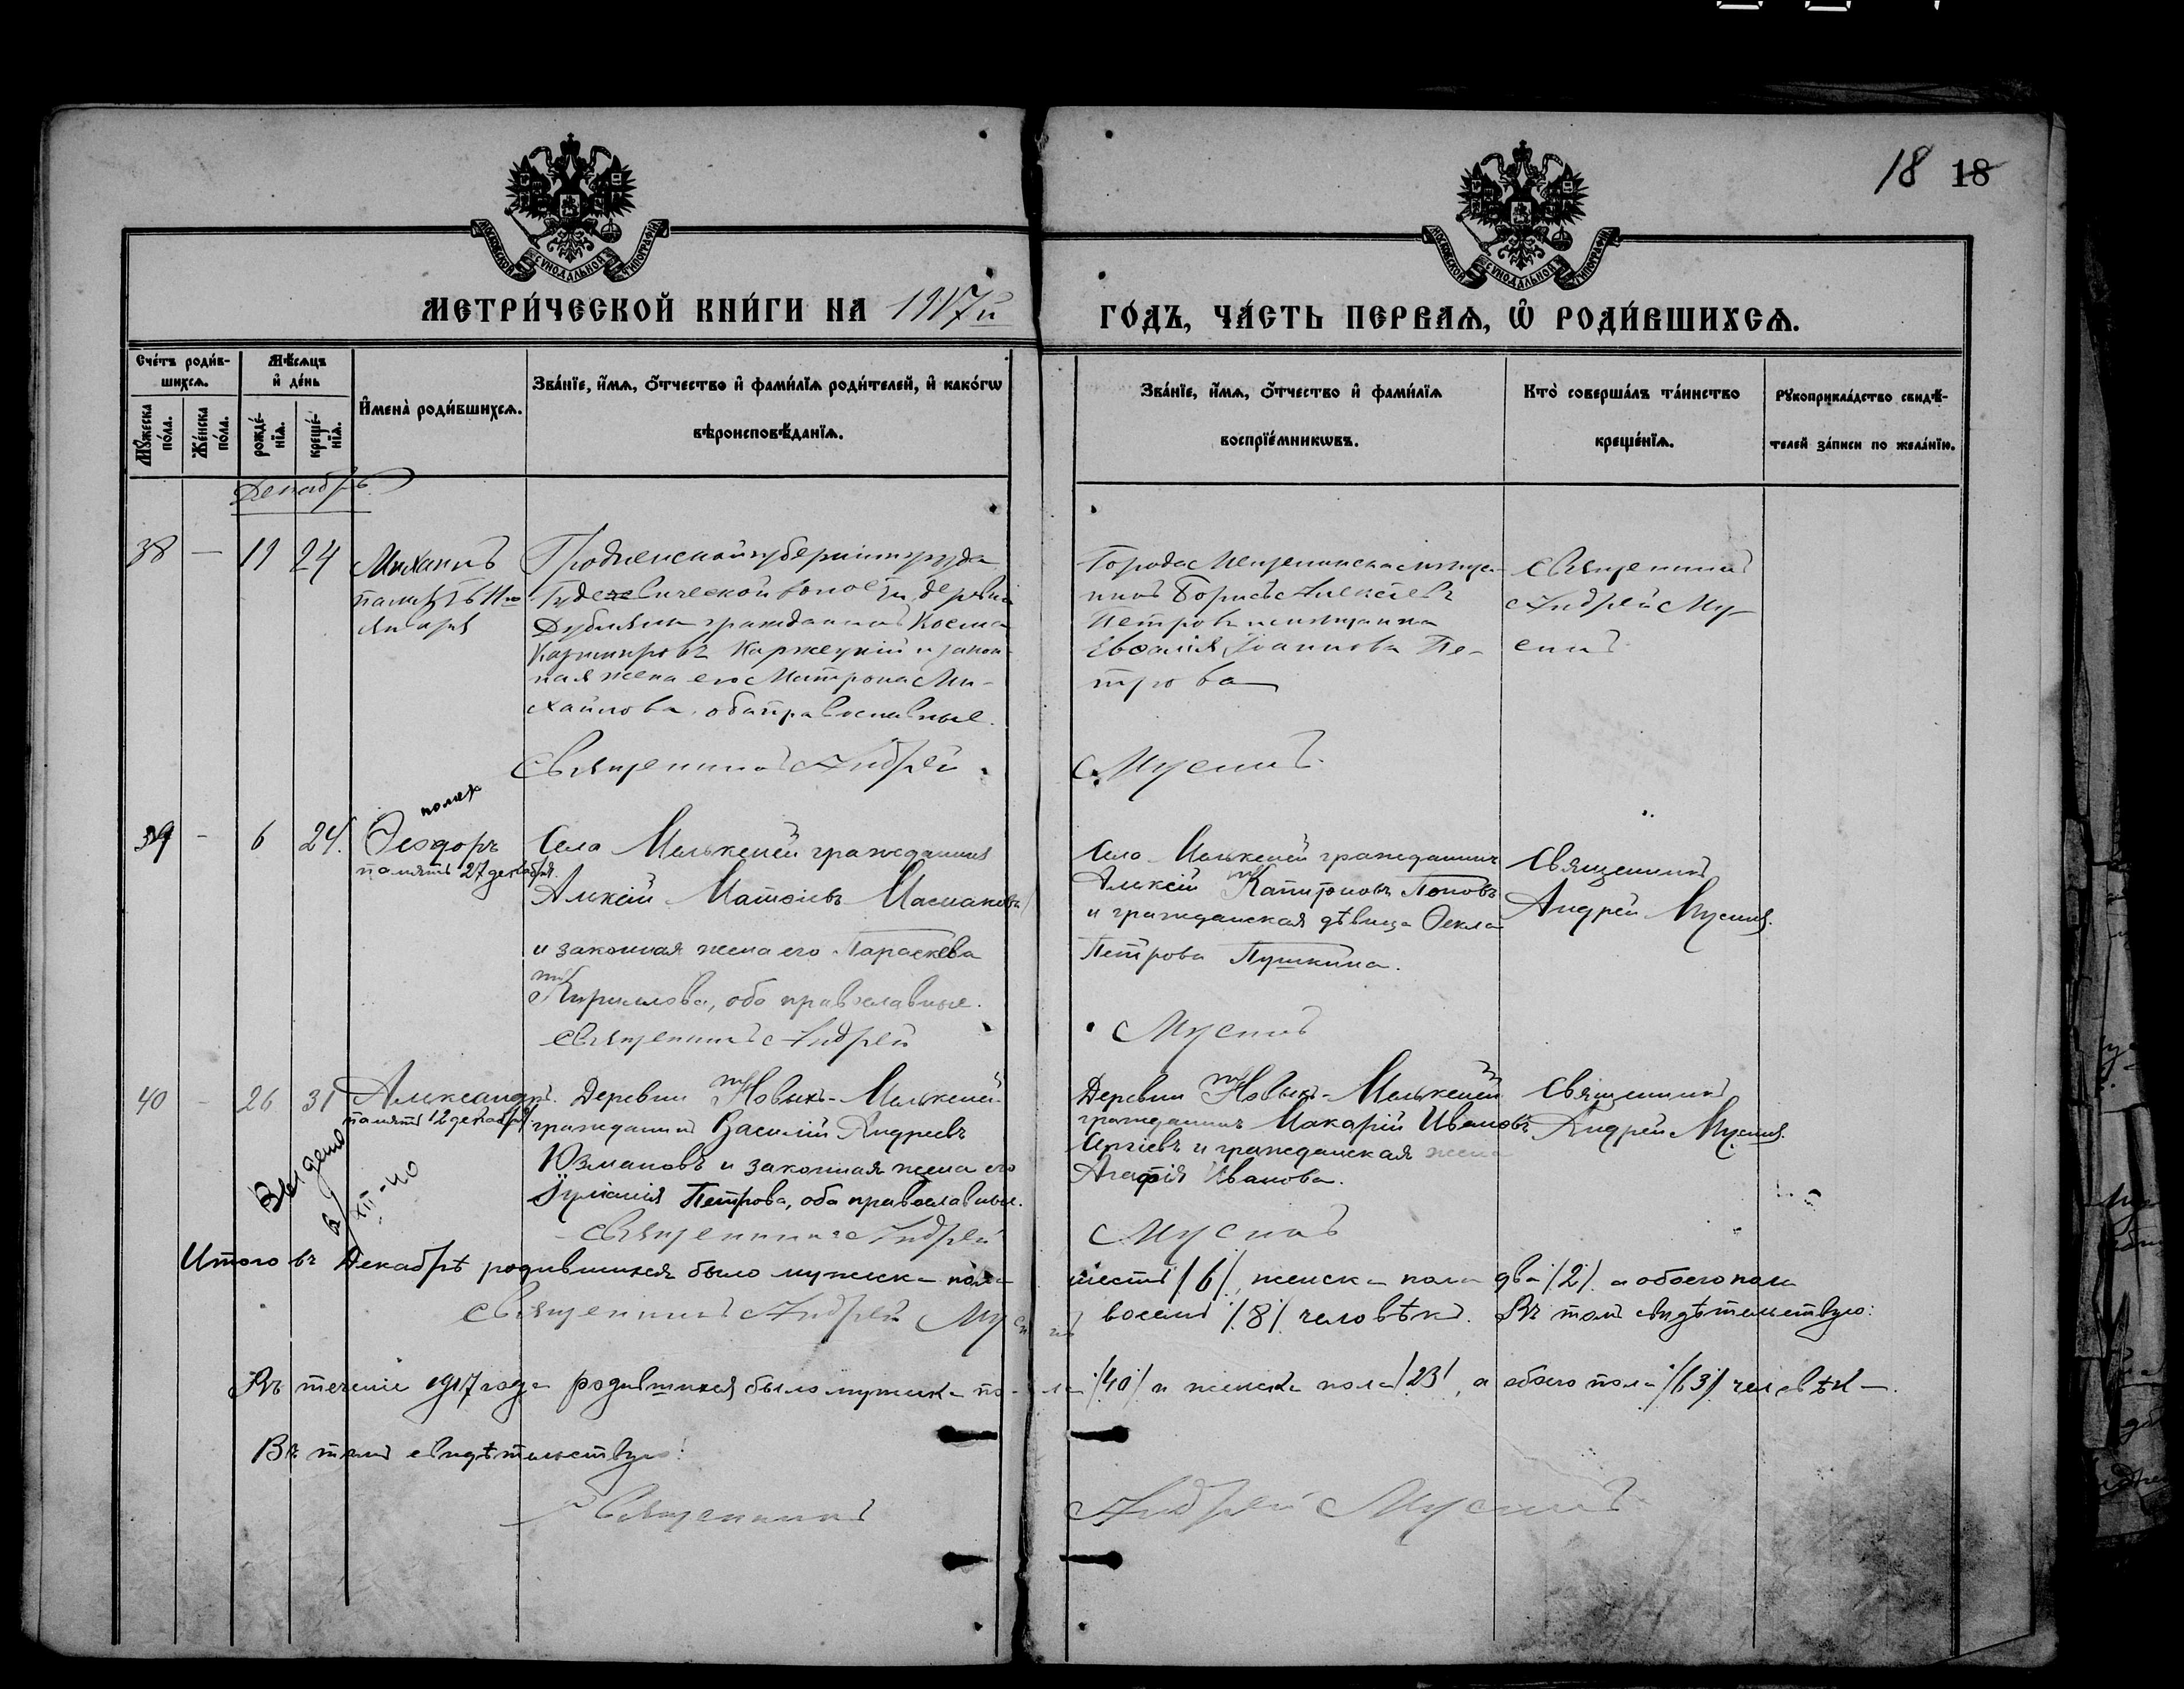 18 18
МОСКОВСКОЙ СѴНОДАЛЬНОЙ ТИПОГРАФІИ
МОСКОВСКОЙ СѴНОДАЛЬНОЙ ТИПОГРАФІИ
МЕТРИ́ЧЕСКОЙ КНИ́ГИ НА 1917й
ГО́ДЪ, ЧА́СТЬ ПЕРВАѦ, Ѡ҆ РОДИ́ВШИХСѦ.
Сче́тъ роди́в-
шихсѧ.
Мꙋ́жеска по́ла.
Же́нска по́ла.
Мѣ́сѧцъ
и҆ де́нь
рожде́-
нїѧ.
креще́-
нїѧ.
И҆мена̀ роди́вшихсѧ.
Зва́нїе, и҆́мѧ, ѻ҆́тчество и҆ фами́лїѧ роди́телей, и҆ како́гѡ
вѣроисповѣ́данїѧ.
Зва́нїе, и҆́мѧ, ѻ҆́тчество и҆ фами́лїѧ
воспрїе́мникѡвъ.
Кто̀ соверша́лъ та́инство
креще́нїѧ.
Рꙋкоприкла́дство свидѣ́-
телей за́писи по жела́нїю.
Декабрь
38 — 11 24
Михаилъ
память 11го
Января
Гродненской губерніи и уѣзда
волости, деревни
гражданинъ Косма
Каржецкій и закон-
ная жена его Матрона Ми-
хайлова, оба православные.
Священникъ Андрей
Города Мензелинска мѣща-
нинъ Борисъ Алексѣевъ
Петровъ и мѣщанка
Евѳалія Іоаннова Пе-
трова
Мусинъ
Священникъ
Андрей Му-
синъ
39 - 6 24.
Ѳеодоръ
память 27 декабря.
Села Мелькеней гражданинъ
Алексій Матѳіевъ Масмаковъ
и законная жена его Параскева
Кириллова, оба православные.
Священникъ Андрей
Села Мелькеней гражданинъ
Алексій Капитоновъ Поповъ
и гражданская дѣвица Ѳекла
Петрова Пушкина.
Мусинъ
Священникъ
Андрей Мусинъ.
40 - 26 31
Александръ.
память 12 декабря
Выдано
XII-40
Деревни Новыхъ-Мелькеней
гражданинъ Василій Андреевъ
Юзмановъ и законная жена его
Іуліанія Петрова, оба православные.
Священникъ Андрей
Деревни Новыхъ-Мелькеней
гражданинъ Макарій Ивановъ
Сергіевъ и гражданская жена
Агафія Иванова.
Мусинъ
Священникъ
Андрей Мусинъ.
Итого въ Декабрѣ родившихся было мужеска пола шесть /6/, женска пола два /2/ а обоего пола
восемь /8/ человѣкъ. Въ томъ свидѣтельствую:
Священникъ Андрей Мусинъ
Въ теченіе 1917 года родившихся было мужска пола /40/ и женска пола /23/, а обоего пола /63/ человѣка.
Въ томъ свидѣтельствую:
Священникъ Андрей Мусинъ